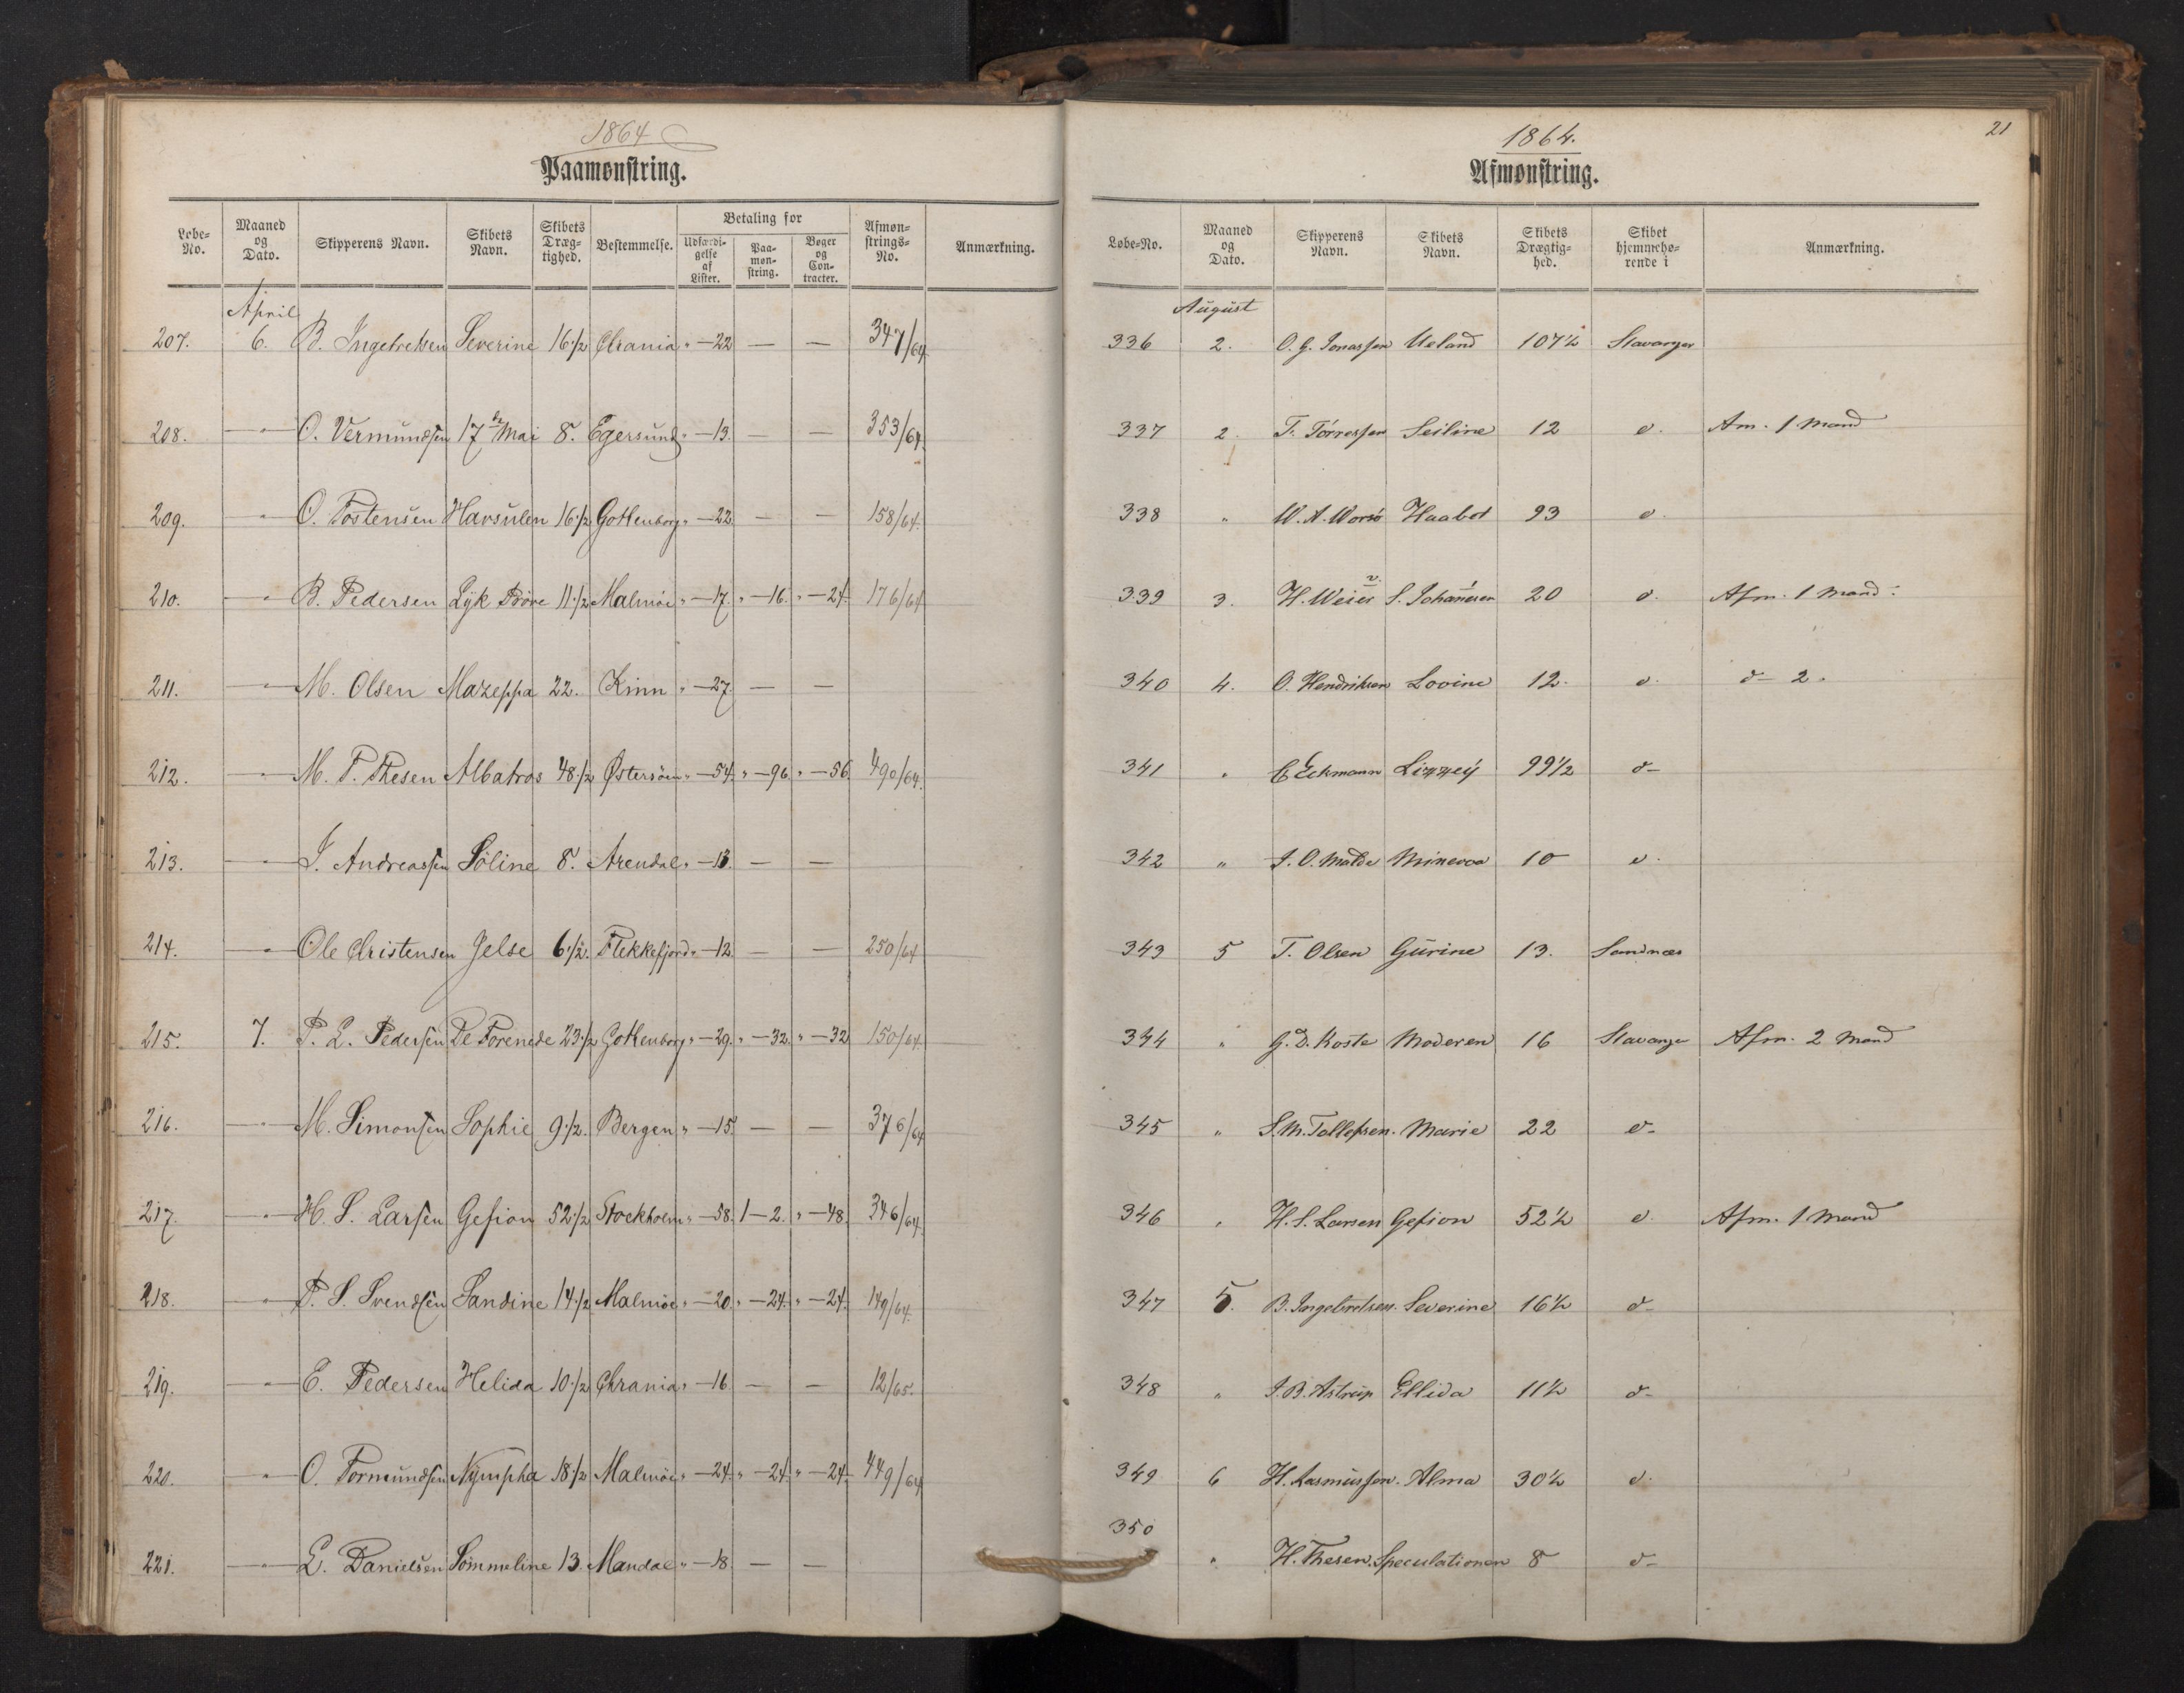 1864
Paamønstring.
Løbe-No. Maaned og Dato. Skipperens Navn. Skibets Navn. Skibets Dræg-tighed. Bestemmelse. Betaling for Udfærdi-gelse af Lister. Paa-møn-string. Bøger og Con-tracter. Afmøn-strings-No. Anmærkning.
April
207. 6. B. Ingebretsen Severine 16 1/2 Chrania " — 22 — — 347/64
208. — " — O. Vermundsen 17de Mai 8. Egersund " — 13. — — 353/64
209. " O. Tostensen Havsulen 16 1/2 Gottenborg " — 22 — — 158/64
210. — " — B. Pedersen Lyk Prøve 11 1/2 Malmöe " — 17. " — 16. " — 24. 176/64
211. — " — M. Olsen Mazeppa 22. Kinn " — 27. — —
212. — " — M. T. Thesen Albatros 48 1/2 Østersöen " — 54. " — 96. " — 56 490/64
213. — " — J. Andreassen Söline 8. Arendal " — 13. — —
214. — " — Ole Christensen Jelse 6 1/2. Flekkefjord " — 12. — — 250/64
215. 7. P. L. Pedersen De Forenede 23 1/2 Gottenborg " — 29. " — 32. " — 32 150/64
216. — " — M. Simonsen Sophie 9 1/2. Bergen " — 15. — — 376/64
217. — " — H. S. Larsen Gefion 52 1/2 Stockholm " — 58. 1 — 2. " — 48. 346/64
218. — " — P. S. Svendsen Sandine 14 1/2 Malmöe " — 20. " — 24. " — 24. 149/64
219. — " — E. Pedersen Helida 10 1/2 Chrania " — 16 — — 12/65.
220. — " — O. Tormundsen Nympha 18 1/2 Malmöe " — 24. " — 24. " — 24. 449/64
221. — " — L. Danielsen Sömmeline 13. Mandal " — 18. — —
1864.
21
Afmønstring.
Løbe-No. Maaned og Dato. Skipperens Navn. Skibets Navn. Skibets Drægtig-hed. Skibet hjemmehø-rende i Anmærkning.
August
336 2. O. G. Jonassen Ueland 107 1/2 Stavanger
337 2. T. Törressen Seiline 12 d. Am. 1 Mand
338 " W. A. Worsö Haabet 93 d.
339 3. H. Weier v. S. Johannesen 20 d. Afm. 1 Mand.
340 4. O. Hendriksen Lovine 12. d. d— 2 "
341 " C Eckmann Lizzey 99 1/2 d—
342 " J. O. Malde Minerva 10 d.
343 5 T. Olsen Gurine 13. Sandnæs
344 " G. D. Koste Moderen 16 Stavanger Afm. 2 Mand
345 " S. M. Tollefsen. Marie 22 d—
346 " H. S. Larsen Gefion 52 1/2 d. Afm. 1 Mand
347 5. B. Ingebretsen. Severine 16 1/2 d—
348 " J. B. Astrup Ellida 11 1/2 d—
349 6 H. Rasmussen. Alma 30 1/2 d.
350 " H. Thesen. Speculationen 8 d—